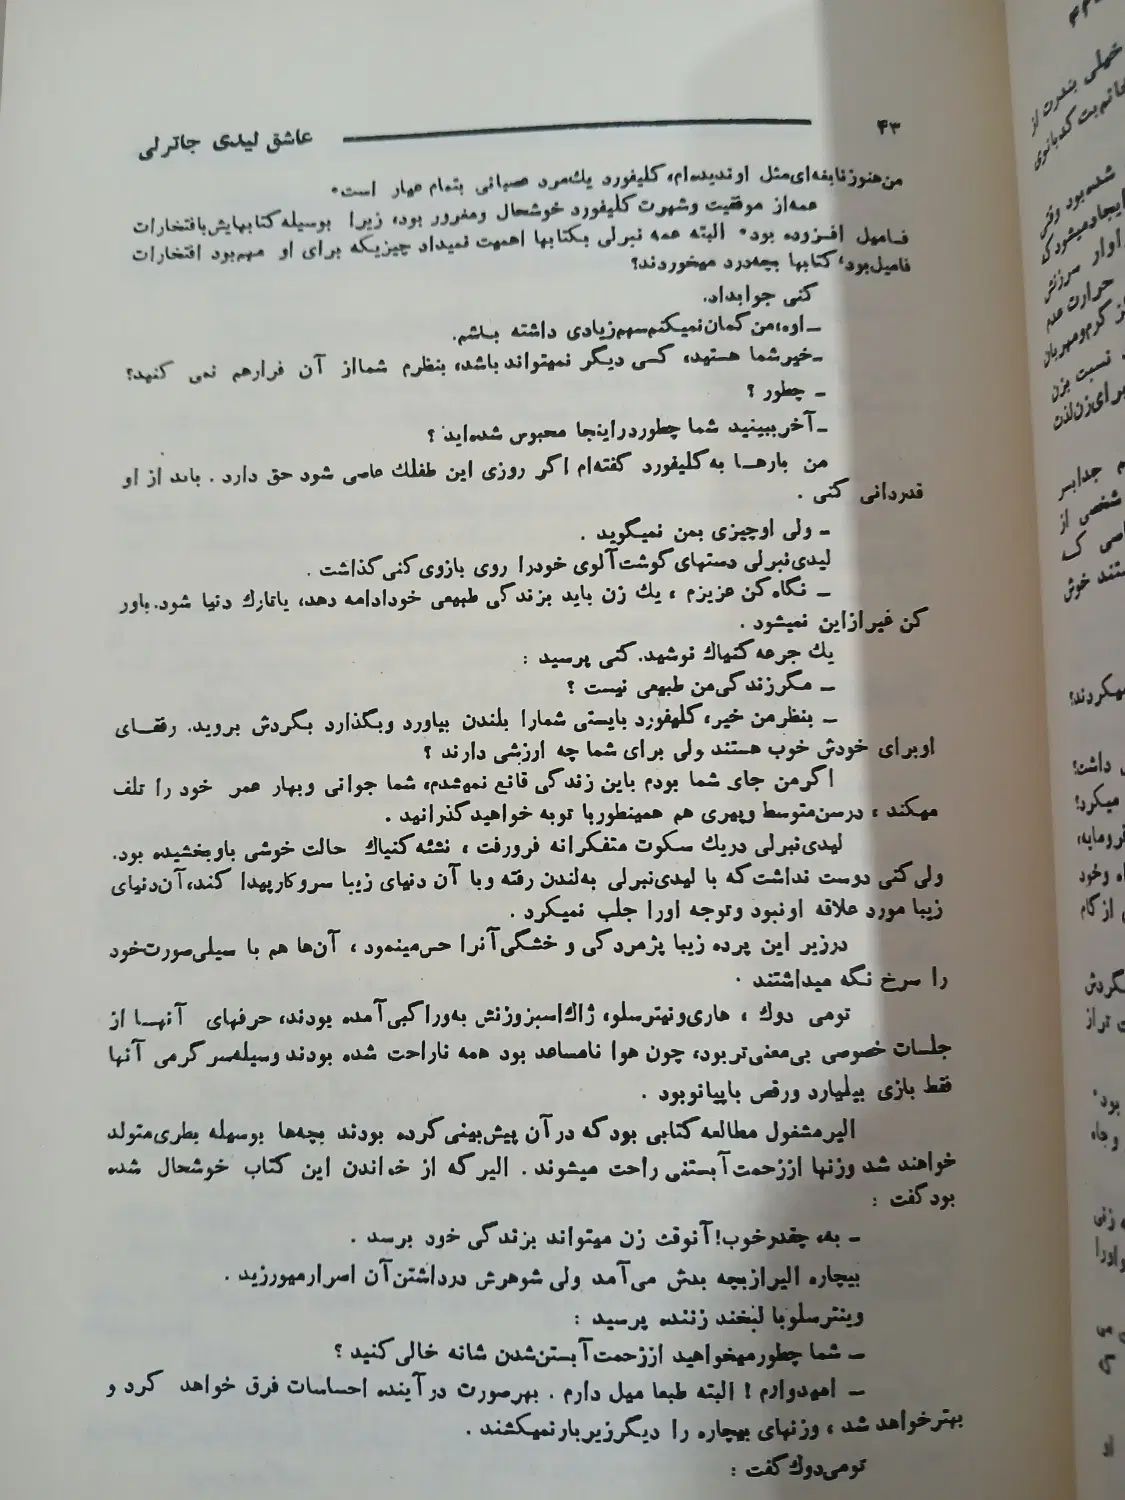 ۴۳ عاشق لیدی چاترلی
من هنوز نابغه‌ای مثل او ندیده‌ام، کلیفورد یك مرد عصبانی بتمام عیار است.
همه از موفقیت وشهرت کلیفورد خوشحال ومغرور بود، زیرا بوسیله کتابهایش بافتخارات
فـامیل افـزوده بود. البته عمه نبرلی بکتابها اهمیت نمیداد چیزیکه برای او مهم بود افتخارات
فامیل بود، کتابها بچه‌درد میخوردند؟
کنی جوابداد.
ـ اوه، من گمان نمیکنم سهم زیادی داشته بـاشم.
ـ خیر شما هستید، کسی دیگر نمیتواند باشد، بنظرم شما از آن فرار هم نمی کنید؟
ـ چطور ؟
ـ آخر ببینید شما چطور دراینجا محبوس شده‌اید ؟
من بارهـا به کلیفورد گفته‌ام اگر روزی این طفلك عاصی شود حق دارد . باید از او
قدردانی کنی .
ـ ولی اوچیزی بمن نمیگوید .
لیدی نبرلی دستهای گوشت‌آلوی خودرا روی بازوی کنی گذاشت .
ـ نگاه کن عزیزم ، یك زن باید بزندگی طبیعی خودادامه دهد، یاتارك دنیا شود. باور
کن غیرازاین نمیشود .
یك جرعه کنیاك نوشید. کنی پرسید :
ـ مگر زندگی من طبیعی نیست ؟
ـ بنظر من خیر، کلیفورد بایستی شمارا بلندن بیاورد وبگذارد بگردش بروید. رفقـای
اوبرای خودش خوب هستند ولی برای شما چه ارزشی دارند ؟
اگر من جای شما بودم باین زندگی قانع نمیشدم، شما جوانی وبهار عمر خود را تلف
میکند ، درسن متوسط وپیری هم همینطور با توبه خواهید گذرانید .
لیدی نبرلی دریك سکوت متفکرانه فرورفت ، نشئه کنیاك حالت خوشی باوبخشیده بود.
ولی کنی دوست نداشت که با لیدی نبرلی به‌لندن رفته وبا آن دنیای زیبا سروکارپیدا کند، آن دنیای
زیبا مورد علاقه اونبود وتوجه اورا جلب نمیکرد .
درزیر این پرده زیبا پژمردگی و خشگی آنرا حس مینمود ، آن‌ها هم با سیلی صورت خود
را سرخ نگه میداشتند .
تومی دوك ، هاری ونیتر سلو، ژاك اسبز وزنش به‌وراکبی آمده بودند، حرفهای آنهـا از
جلسات خصوصی بی‌معنی تر بود، چون هوا نامساعد بود همه ناراحت شده بودند وسیله سرگرمی آنها
فقط بازی بیلیارد ورقص با پیانو بود .
الیر مشغول مطالعه کتابی بود که در آن پیش‌بینی کرده بودند بچه‌ها بوسیله بطری متولد
خواهند شد وزنها اززحمت آبستنی راحت میشوند . الیر که از خواندن این کتاب خوشحال شده
بود گفت :
ـ به، چقدر خوب! آنوقت زن میتواند بزندگی خود برسد .
بیچاره الیر ازبچه بدش می‌آمد ولی شوهرش درداشتن آن اصرار میورزید .
وینتر سلو با لبخند زننده پرسید :
ـ شما چطور میخواهید اززحمت آبستن شدن شانه خالی کنید ؟
ـ امیدوارم ! البته طبعا میل دارم . بهرصورت درآینده احساسات فرق خواهد کرد و
بهتر خواهد شد ، وزنهای بیچاره را دیگر زیر بار نمیکشند .
تومی دوك گفت :